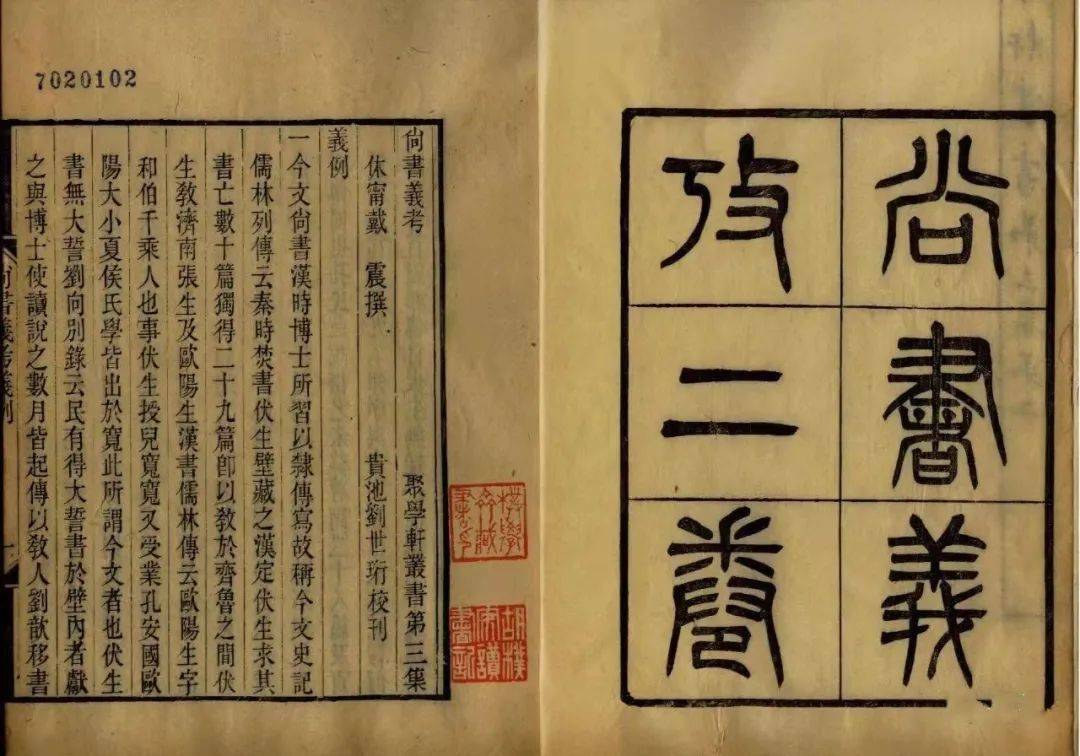 尚書義
攷二卷
7020102
尚書義考　聚學軒叢書第三集
休甯戴　震撰　貴池劉世珩校刊
義例
一今文尚書漢時博士所習以隸傳寫故稱今文史記
儒林列傳云秦時焚書伏生壁藏之漢定伏生求其
書亡數十篇獨得二十九篇卽以敎於齊魯之間伏
生敎濟南張生及歐陽生漢書儒林傳云歐陽生字
和伯千乘人也事伏生授兒寬寬又受業孔安國歐
陽大小夏侯氏學皆出於寬此所謂今文者也伏生
書無大誓劉向別錄云民有得大誓書於壁內者獻
之與博士使讀說之數月皆起傳以敎人劉歆移書
尚書義考義例
一
胡樸安讀書記